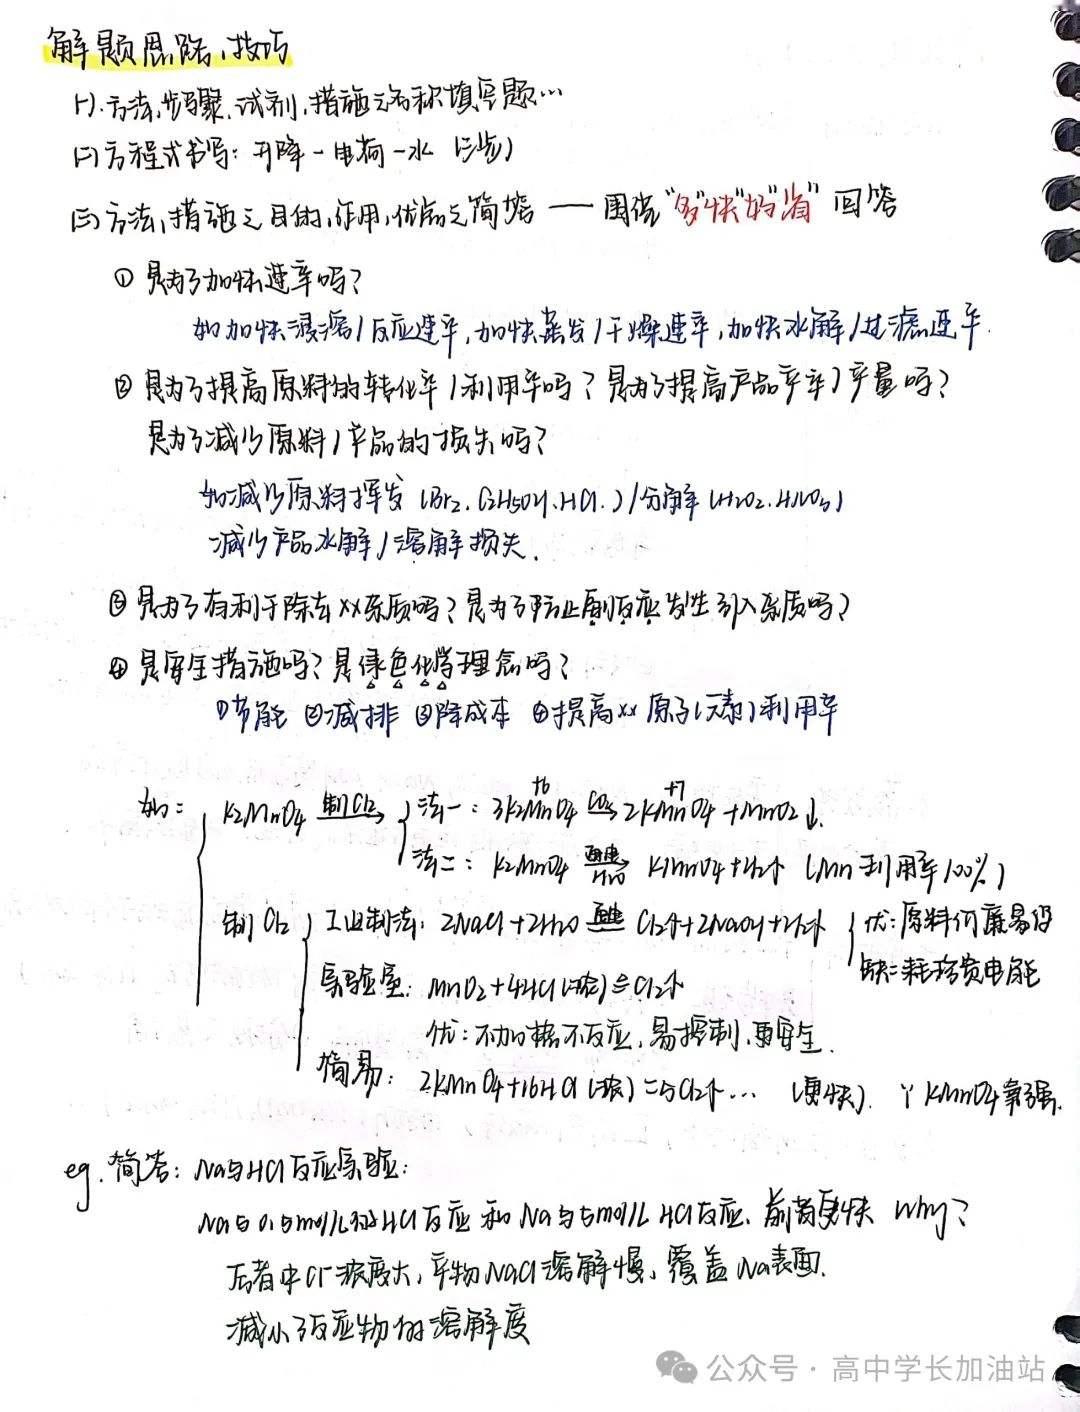 解题思路、技巧
(一).方法,步骤,试剂,措施之名称填空题…
(二)方程式书写:升降-电荷-水 (三步)
(三)方法,措施之目的,作用,优点之简答 —— 围绕"多""快""好""省"回答
① 是为了加快速率吗?
如加快浸溶/反应速率,加快蒸发/干燥速率,加快水解/过滤速率.
② 是为了提高原料的转化率/利用率吗?是为了提高产品产率/产量吗?
是为了减少原料/产品的损失吗?
如减少原料挥发 (Br2.C2H5OH.HCl.)/分解(H2O2.HNO3)
减少产品水解/溶解损失.
③ 是为了有利于除去××杂质吗?是为了防止副反应发生引入杂质吗?
④ 是安全措施吗?是绿色化学理念吗?
①节能 ②减排 ③降成本 ④提高××原子(元素)利用率
+6 +7
如: K2MnO4 制Cl2 法一:3K2MnO4 CO2 2KMnO4+MnO2↓.
法二:K2MnO4 电解 H2O KMnO4+H2↑ (Mn利用率100%)
制Cl2 工业制法:2NaCl+2H2O 电解 Cl2↑+2NaOH+H2↑ 优:原料价廉易得
缺:耗珍贵电能
实验室:MnO2+4HCl(浓)≜Cl2↑
优:不加热不反应,易控制,更安全.
简易:2KMnO4+16HCl(浓)=5Cl2↑… (更快). ∵KMnO4氧强.
eg.简答:Na与HCl反应实验:
Na与0.5mol/L的HCl反应和Na与5mol/L HCl反应.前者更快 Why?
后者中Cl⁻浓度大,产物NaCl溶解慢,覆盖Na表面.
减小了反应物的溶解度
公众号·高中学长加油站